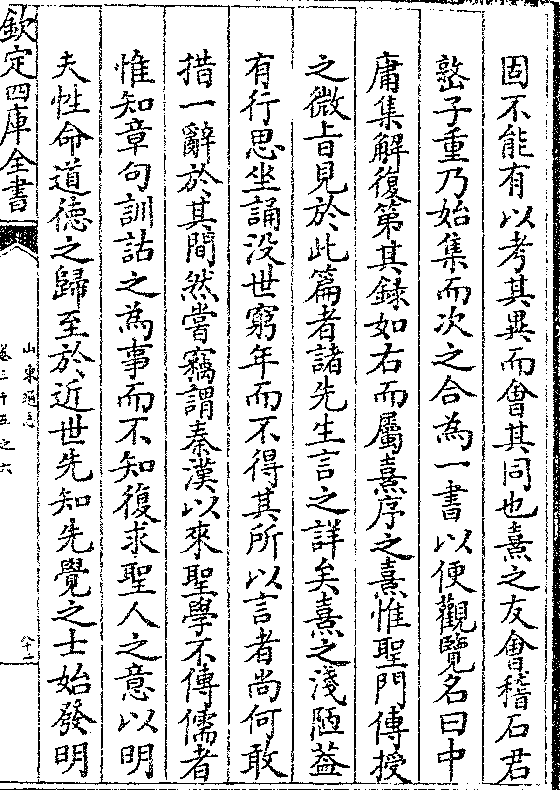 固不能有以考其異而會其同也熹之友會稽石君
𡼖子重乃始集而次之合為一書以便觀覽名曰中
庸集解復第其録如右而屬熹序之熹惟聖門傳授
之微㫖見於此篇者諸先生言之詳矣熹之淺陋葢
有行思坐誦没世窮年而不得其所以言者尚何敢
措一辭於其間然嘗竊謂秦漢以來聖學不傳儒者
惟知章句訓詁之為事而不知復求聖人之意以明
夫性命道德之歸至於近世先知先覺之士始發明
欽定四庫全書
山東通志
卷三十五之六
八十二